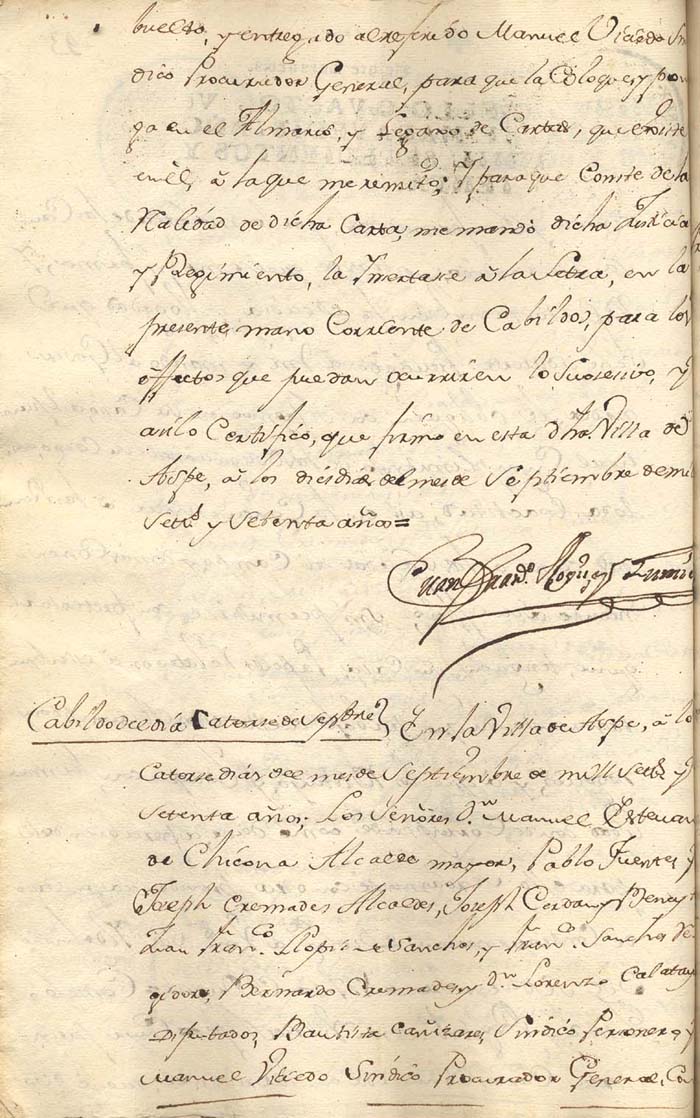 buelto, y entregado al referido Manuel Viredo Sin
dico Procurador General, para que la Coloque, y pon
ga en el Almario, y Legaxo de Cartas, que existe
en el, à la que me remito; Y para que Conste de la
Nalidad de dicha Carta, me mandò dicha Justicia
y Regimiento, la Ynsertase à la Letra, en la
presente mano Corriente de Cabildos, para los
efectos que puedan ocurrir en lo Sucesivo, y
asi lo Certifico, que firmo en esta dha. Villa de
Aspe, à los diesdias del mes de Septiembre de mil
Sets. y Setenta años=
Juan Fran.co
Cabildo de el dia Catorse de Sepbre. En la Villa de Aspe, à lo
Catorse dias del mes de Septiembre de mill Sets. y
Setenta años; Los Señores D.n Manuel Estevan
de Chicona Alcalde mayor, Pablo Fuentes y
Joseph Cremades Alcaldes, Joseph Cerdan y
Juan Fran.co Llopis de Sanchos, y Fran.co Sanches Re
gidores, Bernardo Cremades, y D.n Lorenzo Calatay
Diputados, Bautista Cañizares, Sindico Personero, y
Manuel Viredo Sindico Procurador General, Co